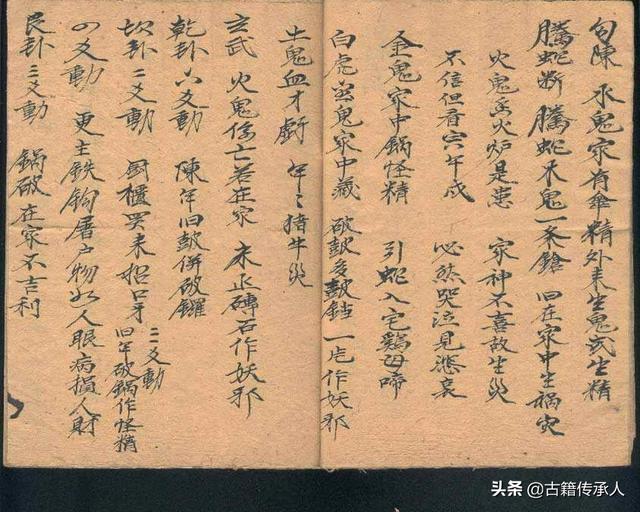 勾陳 水鬼家有傘精外來生鬼武生精
騰蛇断 騰蛇木鬼一条鎗 旧在家中生祸灾
火鬼 火炉是患 家神不喜故生災
不信但看寅午戌 必然哭泣見悲哀
金鬼家中鍋怪精 引蛇入宅鷄母啼
白虎 鬼家中藏 破鼓多鼓 一虎作妖邪
土鬼血才 年〻猪牛災
玄武 火鬼傷亡若在家 木 磚石作妖邪
乾卦六爻動 陳年旧鼓併破鑼
坎卦二爻動 厨櫃買来招口牙 三爻動 旧年破鍋作怪精
四爻動 更主鉄鈎屠户物 人眼病損人財
艮卦三爻動 鍋破在家不吉利
头条 @古籍传承人